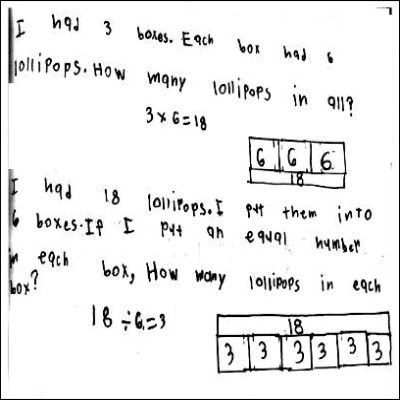 I had 3 boxes. Each box had 6
lollipops. How many lollipops in all?
3 x 6 = 18
6 6 6
18
I had 18 lollipops. I put them into
6 boxes. If I put an equal number
in each box, How many lollipops in each
box?
18 ÷ 6 = 3
18
3 3 3 3 3 3